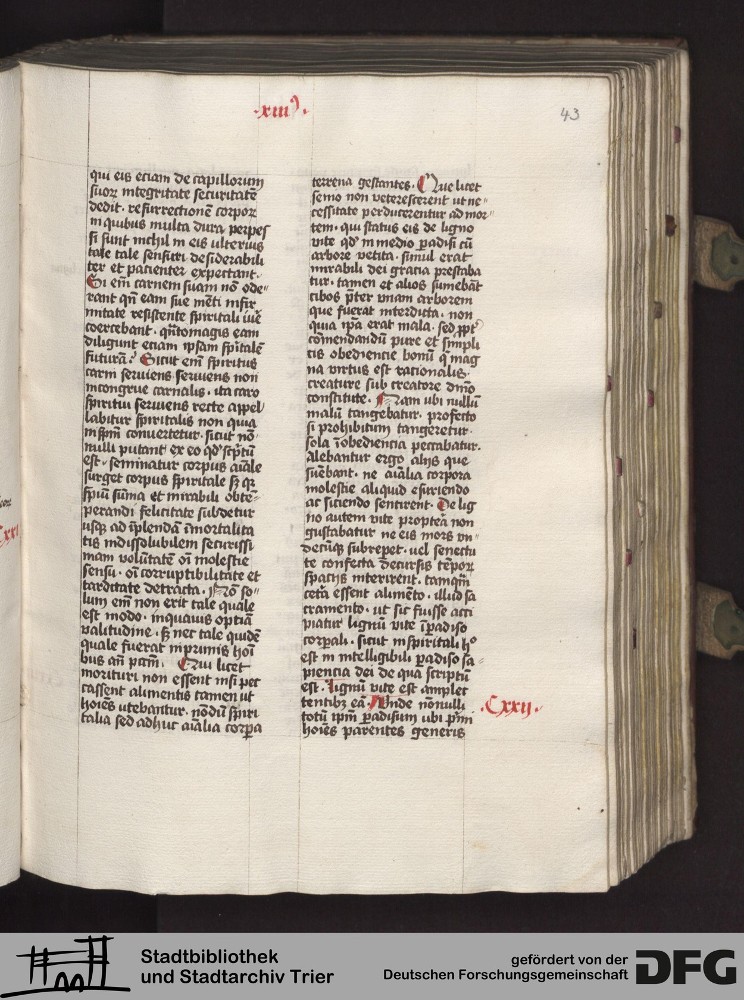 ·xiii·
43
qui eis eciam de capillorum
suorꝝ integritate securitatē
dedit· resurrectionē corporꝝ
in quibus multa dura perpes
si sunt nichil in eis ulterius
tale tale sensuri desiderabili
ter et pacienter expectant·
Si em̄ carnem suam nō ode⸗
rant qn̄ eam sue mēti infir
mitate resistente spirituali iure
coercebant· qntomagis eam
diligunt eciam ipsam spitalē
futurā? Sicut em̄ spiritus
carni serviens seruiens non
incongrue carnalis· ita caro
spiritui seruiens recte appel
labitur spiritalis non quia
in spm̄ conuertetur· sicut nō⸗
nulli putant ex eo qd' scptū
est· seminatur corpus aīale
surget corpus spiritale sꝫ qꝛ
spūi sūma et mirabili obtē⸗
perandi felicitate subdetur
usqꝫ ad īplendā īmortalita
tis indissolubilem securissi
mam volūtatē oī molestie
sensu· oī corruptibilitate et
tarditate detracta· Nō so⸗
lum em̄ non erit tale quale
est modo· in quauis optīa
valitudine· sꝫ nec tale quidē
quale fuerat in primis hoī
bus an̄ pctm̄· Qui licet
morituri non essent nisi pec
cassent alimentis tamen ut
hoīes utebantur· nōdū spiri
talia sed adhuc aīalia corpa
terrena gestantes· Que licet
senio non veterescerent ut ne⸗
cessitate perducerentur ad mor⸗
tem· qui status eis de ligno
vite qd' in medio padisi cū
arbore vetita· simul erat
mirabili dei gracia prestaba
tur· tamen et alios sumebāt
cibos pter vnam arborem
que fuerat interdicta· non
quia ipa erat mala· sed ppt'
cōmendandū pure et simpli
cis obediencie bonū q̄ mag
na virtus est racionalis·
creature sub creatore dn̄o
constitute· Nam ubi nullū
malū tangebatur· profecto
si prohibitum tangeretur·
sola īobediencia peccabatur·
Alebantur ergo alijs que
sūebant· ne aīalia corpora
molestie aliquid esuriendo
ac siciendo sentirent· De lig
no autem vite propterā non
gustabatur ne eis mors vn⸗
decūqꝫ subrepet· uel senectu
te confecta decursis tēporꝝ
spacijs interirent· tamqm̄
cetā essent alimēto· illud sa
cramento· ut sic fuisse acci
piatur lignū vite ī padiso
corpali· sicut in spiritali hᵒ
est in intelligibili padiso sa⸗
piencia dei de qua scriptū
est· lignū vite est amplec
tentibꝫ eā· Vnde nōnulli
totū ipm̄ padisum ubi pm̄i
hoīes parentes generis
·Cxxij·
Stadtbibliothek
und Stadtarchiv Trier
gefördert von der
Deutschen Forschungsgemeinschaft
DFG